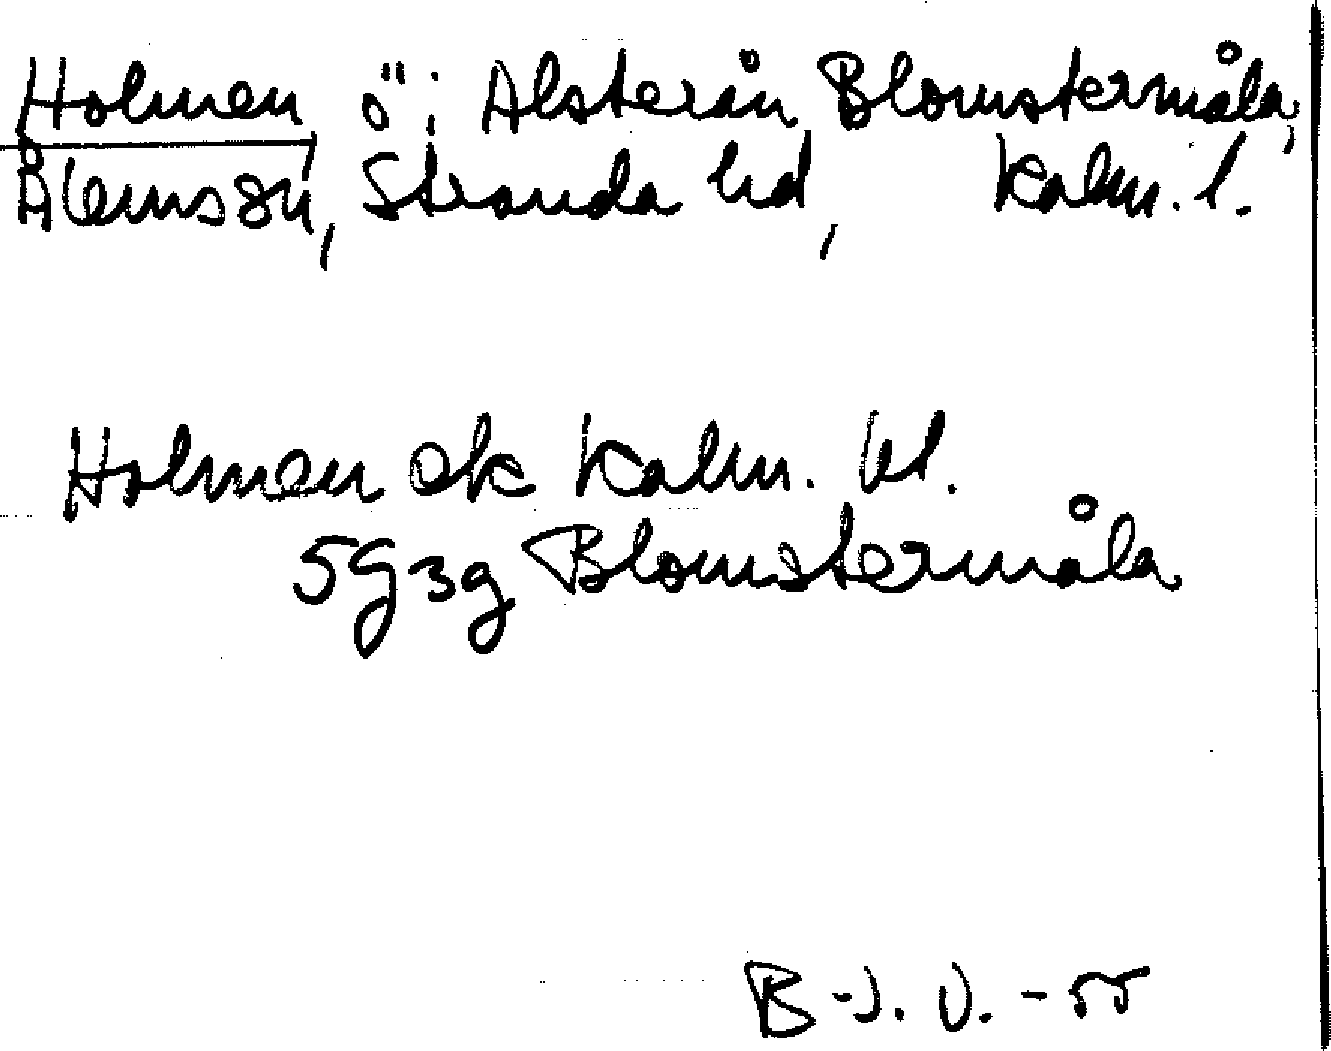 Holmen, ö i Alsterån, Blomstermåla,
Ålems sn, Stranda hd, Kalm. l.
Holmen ek Kalm.
5G3g Blomstermåla
B-J. U. -55